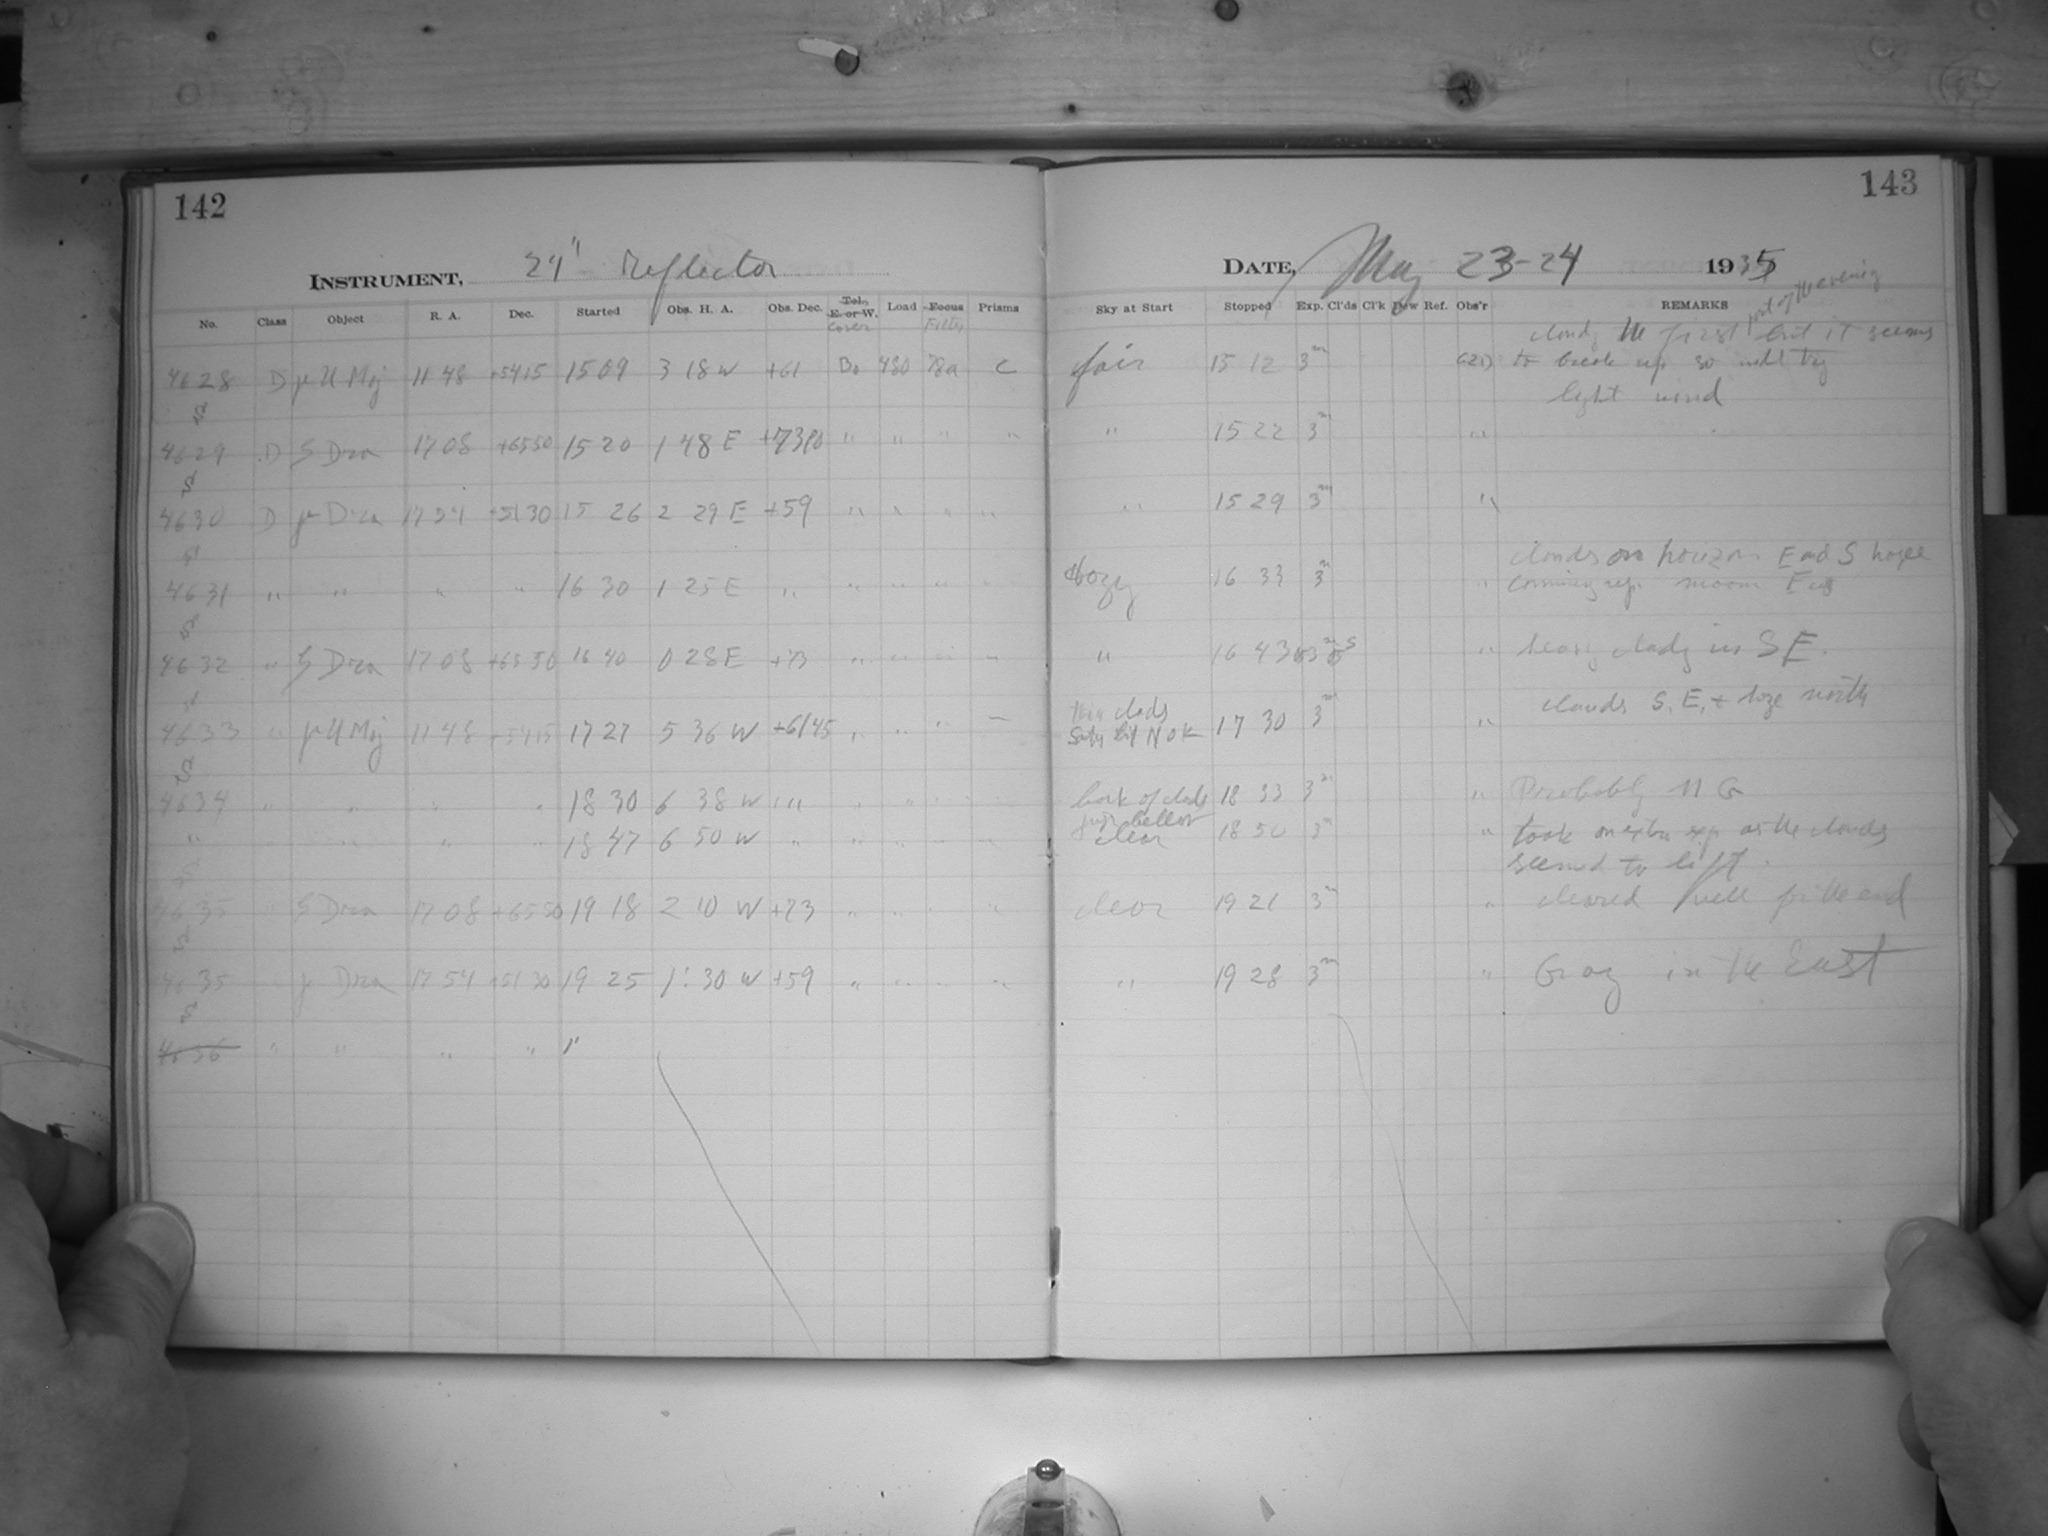 142
INSTRUMENT, 24" Reflector
No. Class Object R. A. Dec. Started Obs. H. A. Obs. Dec. Tel. E. or W. Cover Load Focus Filter Prisms
4628 D μ U Maj 11 48 +5415 15 09 3 18 W +61 Bo 480 78a C
4629 D S Dra 17 08 +6550 15 20 1 48 E " " " "
4630 D μ Dra 17 54 +5130 15 26 2 29 E +59 " " " "
4631 " " " " 16 30 1 25 E " " " " "
4632 " S Dra 17 08 +6550 16 40 0 28 E +73 " " " "
4633 " μ U Maj 11 48 +5415 17 27 5 36 W +6145 " " "
4634 " " " " 18 30 6 38 W " " " "
" " " " 18 47 6 50 W " " " "
4635 " S Dra 17 08 +6550 19 18 2 10 W +73 " " " "
4635 " μ Dra 17 54 +5130 19 25 1:30 W +59 " " " "
4636 " " " " 1"
143
DATE, May 23-24 1935
Sky at Start Stopped Exp. Cl'ds Cl'k Dew Ref. Obs'r REMARKS
part of the evening
cloudy the first but it seems
fair 15 12 3m to break up so will try
light wind
" 15 22 3m "
" 15 29 3m "
clouds on horizon E and S haze
Hazy 16 33 3m " coming up. moon
" 16 43 " heavy cloudy in S E.
clouds S, E, + haze north
thin clouds
N OK 17 30 3m "
bank of clouds 18 33 3m " Probably N G
just bellow
clear 18 50 3m " took an extra exp as the clouds
seemed to lift.
clear 19 21 3m " cleared well for the end
" 19 28 3m " Gray in the East